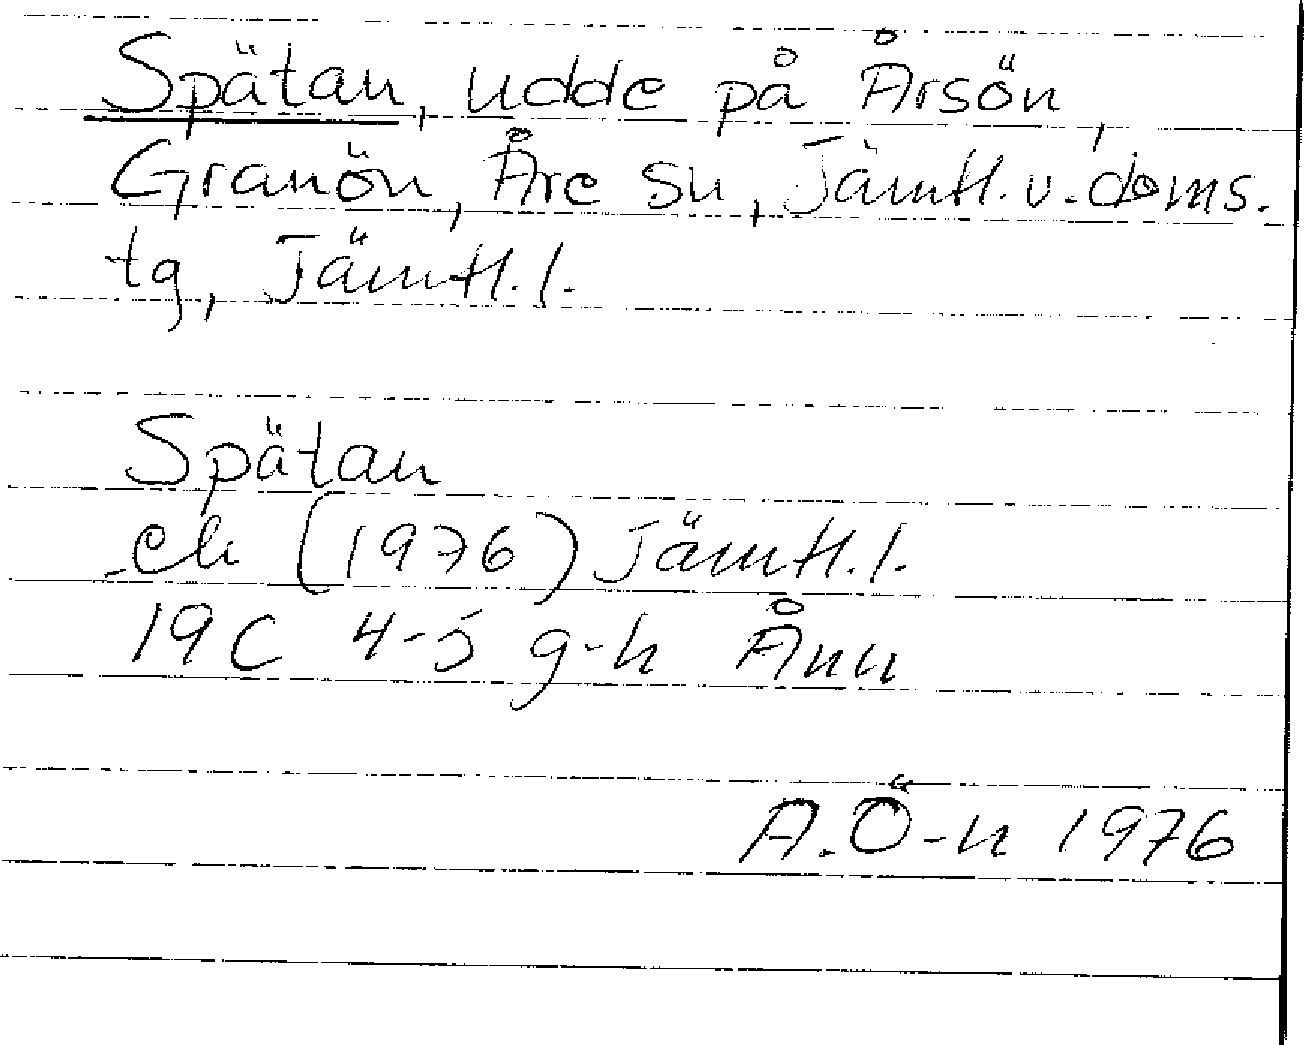 Spätan, udde på Årsön,
Granön, Åre sn, Jämtl. v. doms.
tg, Jämtl. l.
Spätan
ek (1976) Jämtl. l.
19C 4-5 g-h Ånn
A.Ö-n 1976